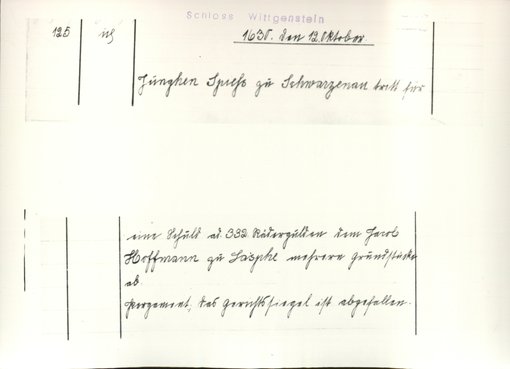 Schloss Wittgenstein
125
1630. den 12. Oktober.
Jüngken Spiess zu Schwarzenau tritt für
eine Schuld ad. 332 Rädergulden dem Jacob
Hoffmann zu Laasphe mehrere Grundstücke
ab
Pergament, das Gerichtssiegel ist abgefallen.